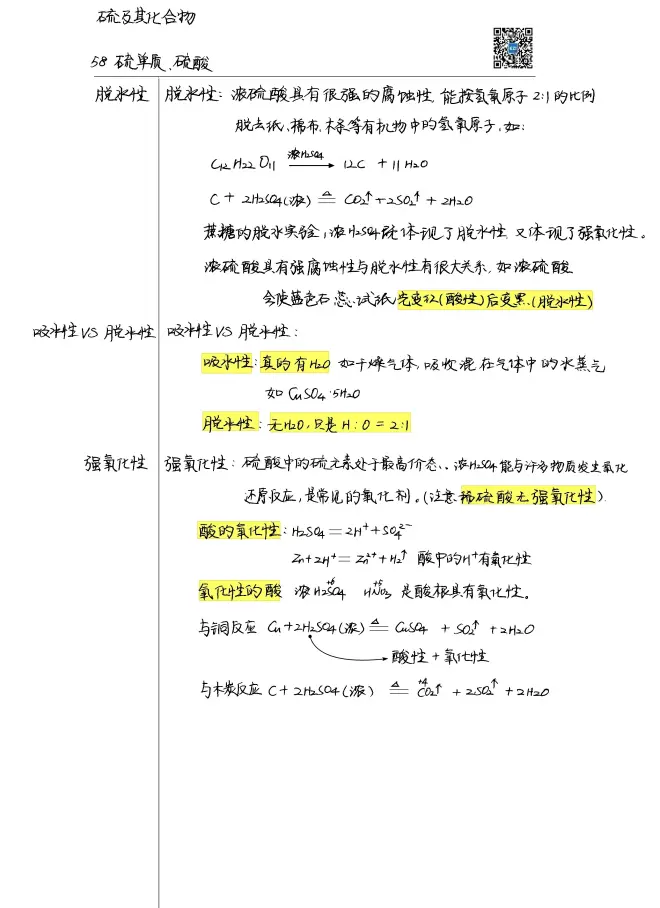 硫及其化合物
58 硫单质、硫酸
脱水性 脱水性：浓硫酸具有很强的腐蚀性，能按氢氧原子 2:1 的比例
脱去纸、棉布、木条等有机物中的氢氧原子，如：
C₁₂H₂₂O₁₁ —浓H₂SO₄→ 12C + 11H₂O
C + 2H₂SO₄(浓) ≜ CO₂↑ + 2SO₂↑ + 2H₂O
蔗糖的脱水实验，浓H₂SO₄既体现了脱水性，又体现了强氧化性。
浓硫酸具有强腐蚀性与脱水性有很大关系，如浓硫酸
会使蓝色石蕊试纸先变红(酸性)后变黑(脱水性)
吸水性 VS 脱水性 吸水性 VS 脱水性：
吸水性：真的有H₂O 如干燥气体，吸收混在气体中的水蒸气
如 CuSO₄·5H₂O
脱水性：无H₂O，只是 H：O = 2:1
强氧化性 强氧化性：硫酸中的硫元素处于最高价态、浓H₂SO₄能与许多物质发生氧化
还原反应，是常见的氧化剂。(注意稀硫酸无强氧化性)
酸的氧化性：H₂SO₄ = 2H⁺ + SO₄²⁻
Zn + 2H⁺ = Zn²⁺ + H₂↑ 酸中的H⁺有氧化性
氧化性的酸 浓H₂SO₄ +6 HNO₃ +5 是酸根具有氧化性。
与铜反应 Cu + 2H₂SO₄(浓) ≜ CuSO₄ + SO₂↑ + 2H₂O
酸性 + 氧化性
与木炭反应 C + 2H₂SO₄(浓) ≜ CO₂↑ +4 + 2SO₂↑ + 2H₂O